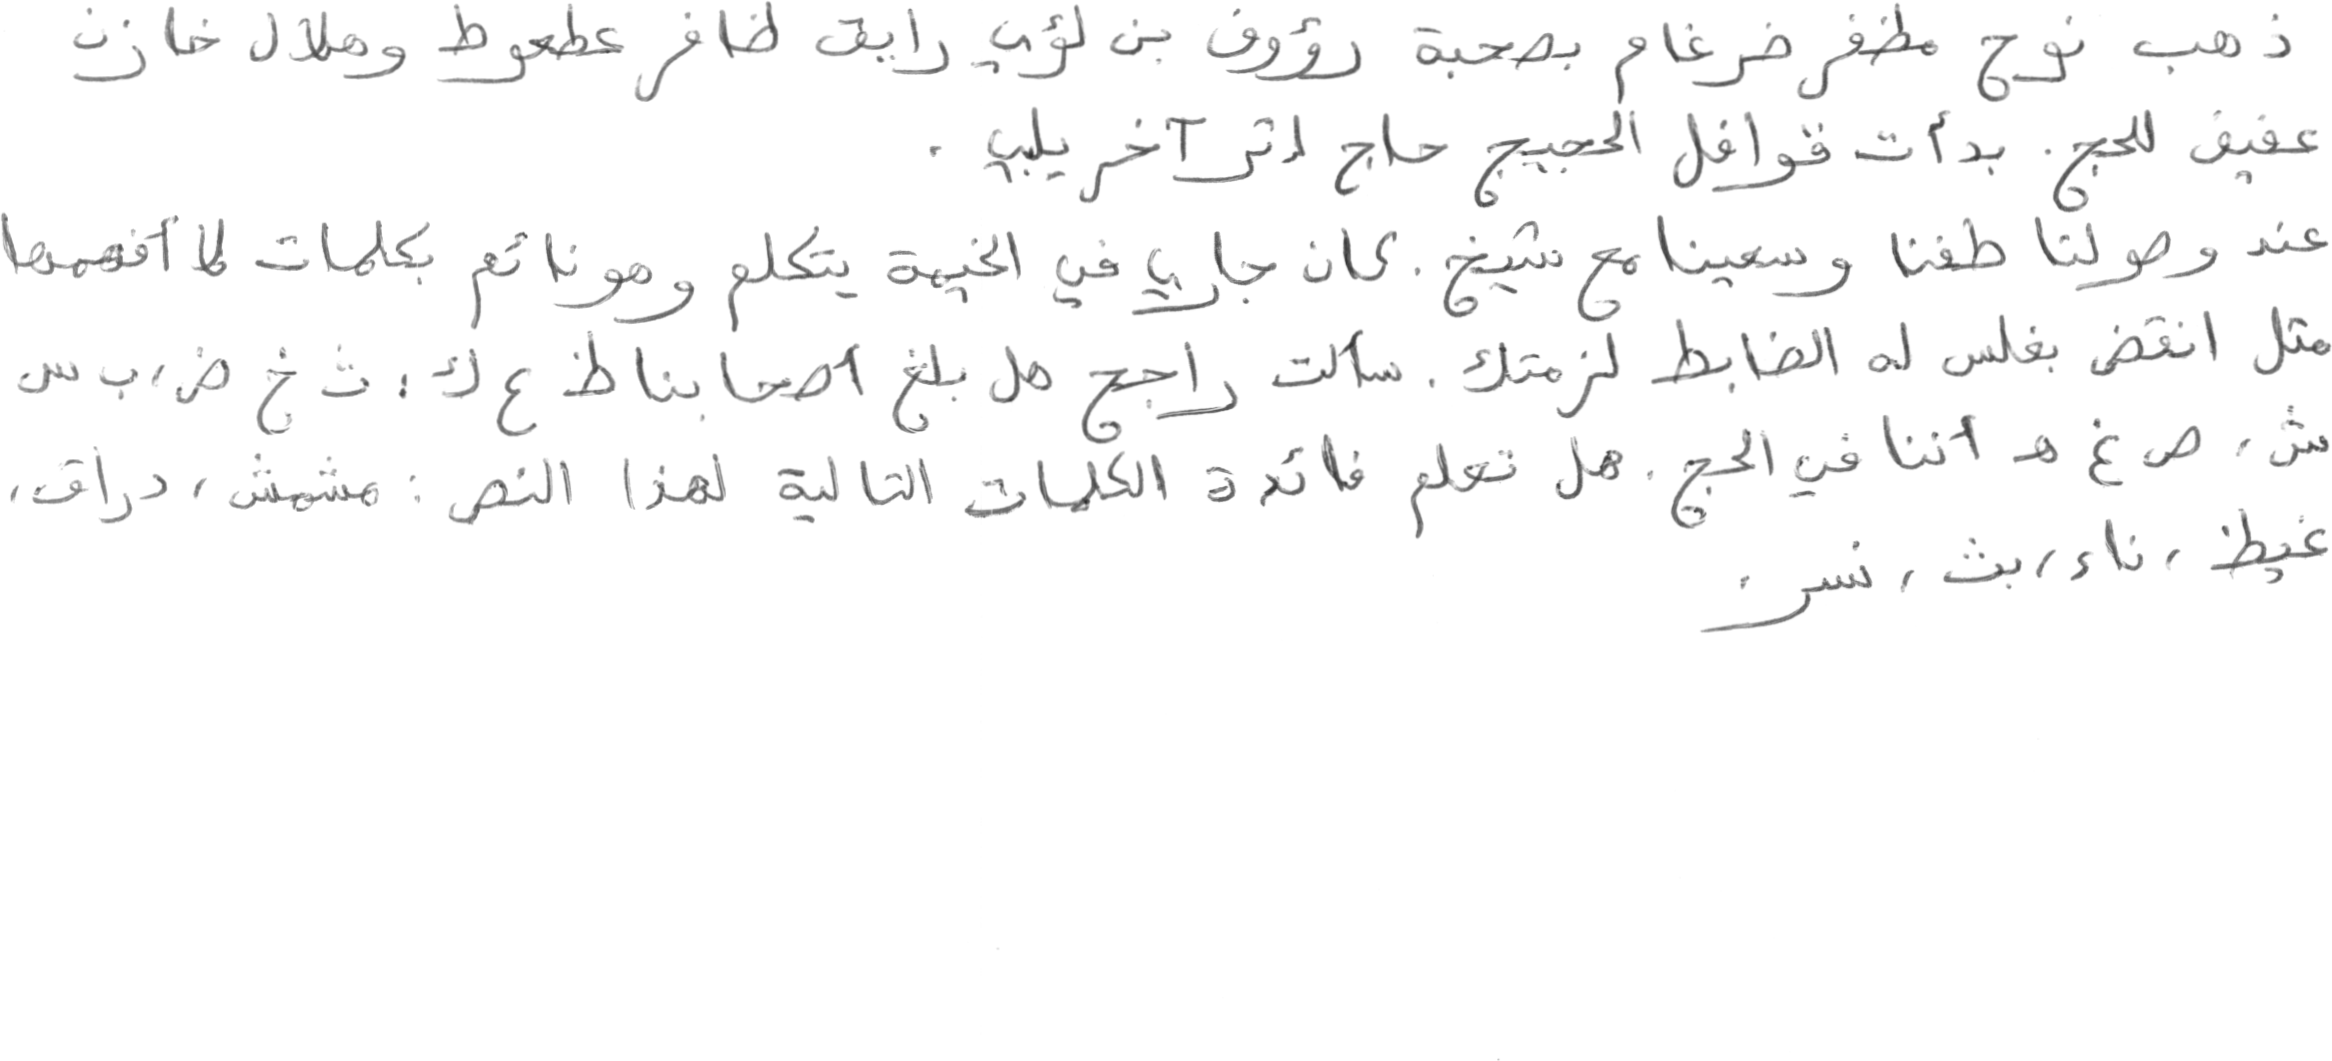 ذهب نوح مظفر ضرغام بصحبة رؤوف بن لؤي رايق ظافر عطعوط وهلال خازن
عفيف للحج. بدأت قوافل الحجيج حاج إثر آخر يلبي .
عند وصولنا طفنا وسعينا مع شيخ. كان جاري في الخيمة يتكلم وهو نائم بكلمات لا أفهمها
مثل انقض بغلس له الضابط لزمتك. سألت راجح هل بلغ أصحابنا ظ ع ك: ث خ ض، ب س
ش، ص غ ه أننا في الحج. هل تعلم فائدة الكلمات التالية لهذا النص: مشمش، دراق،
غيظ، ناء، بث، نسر.